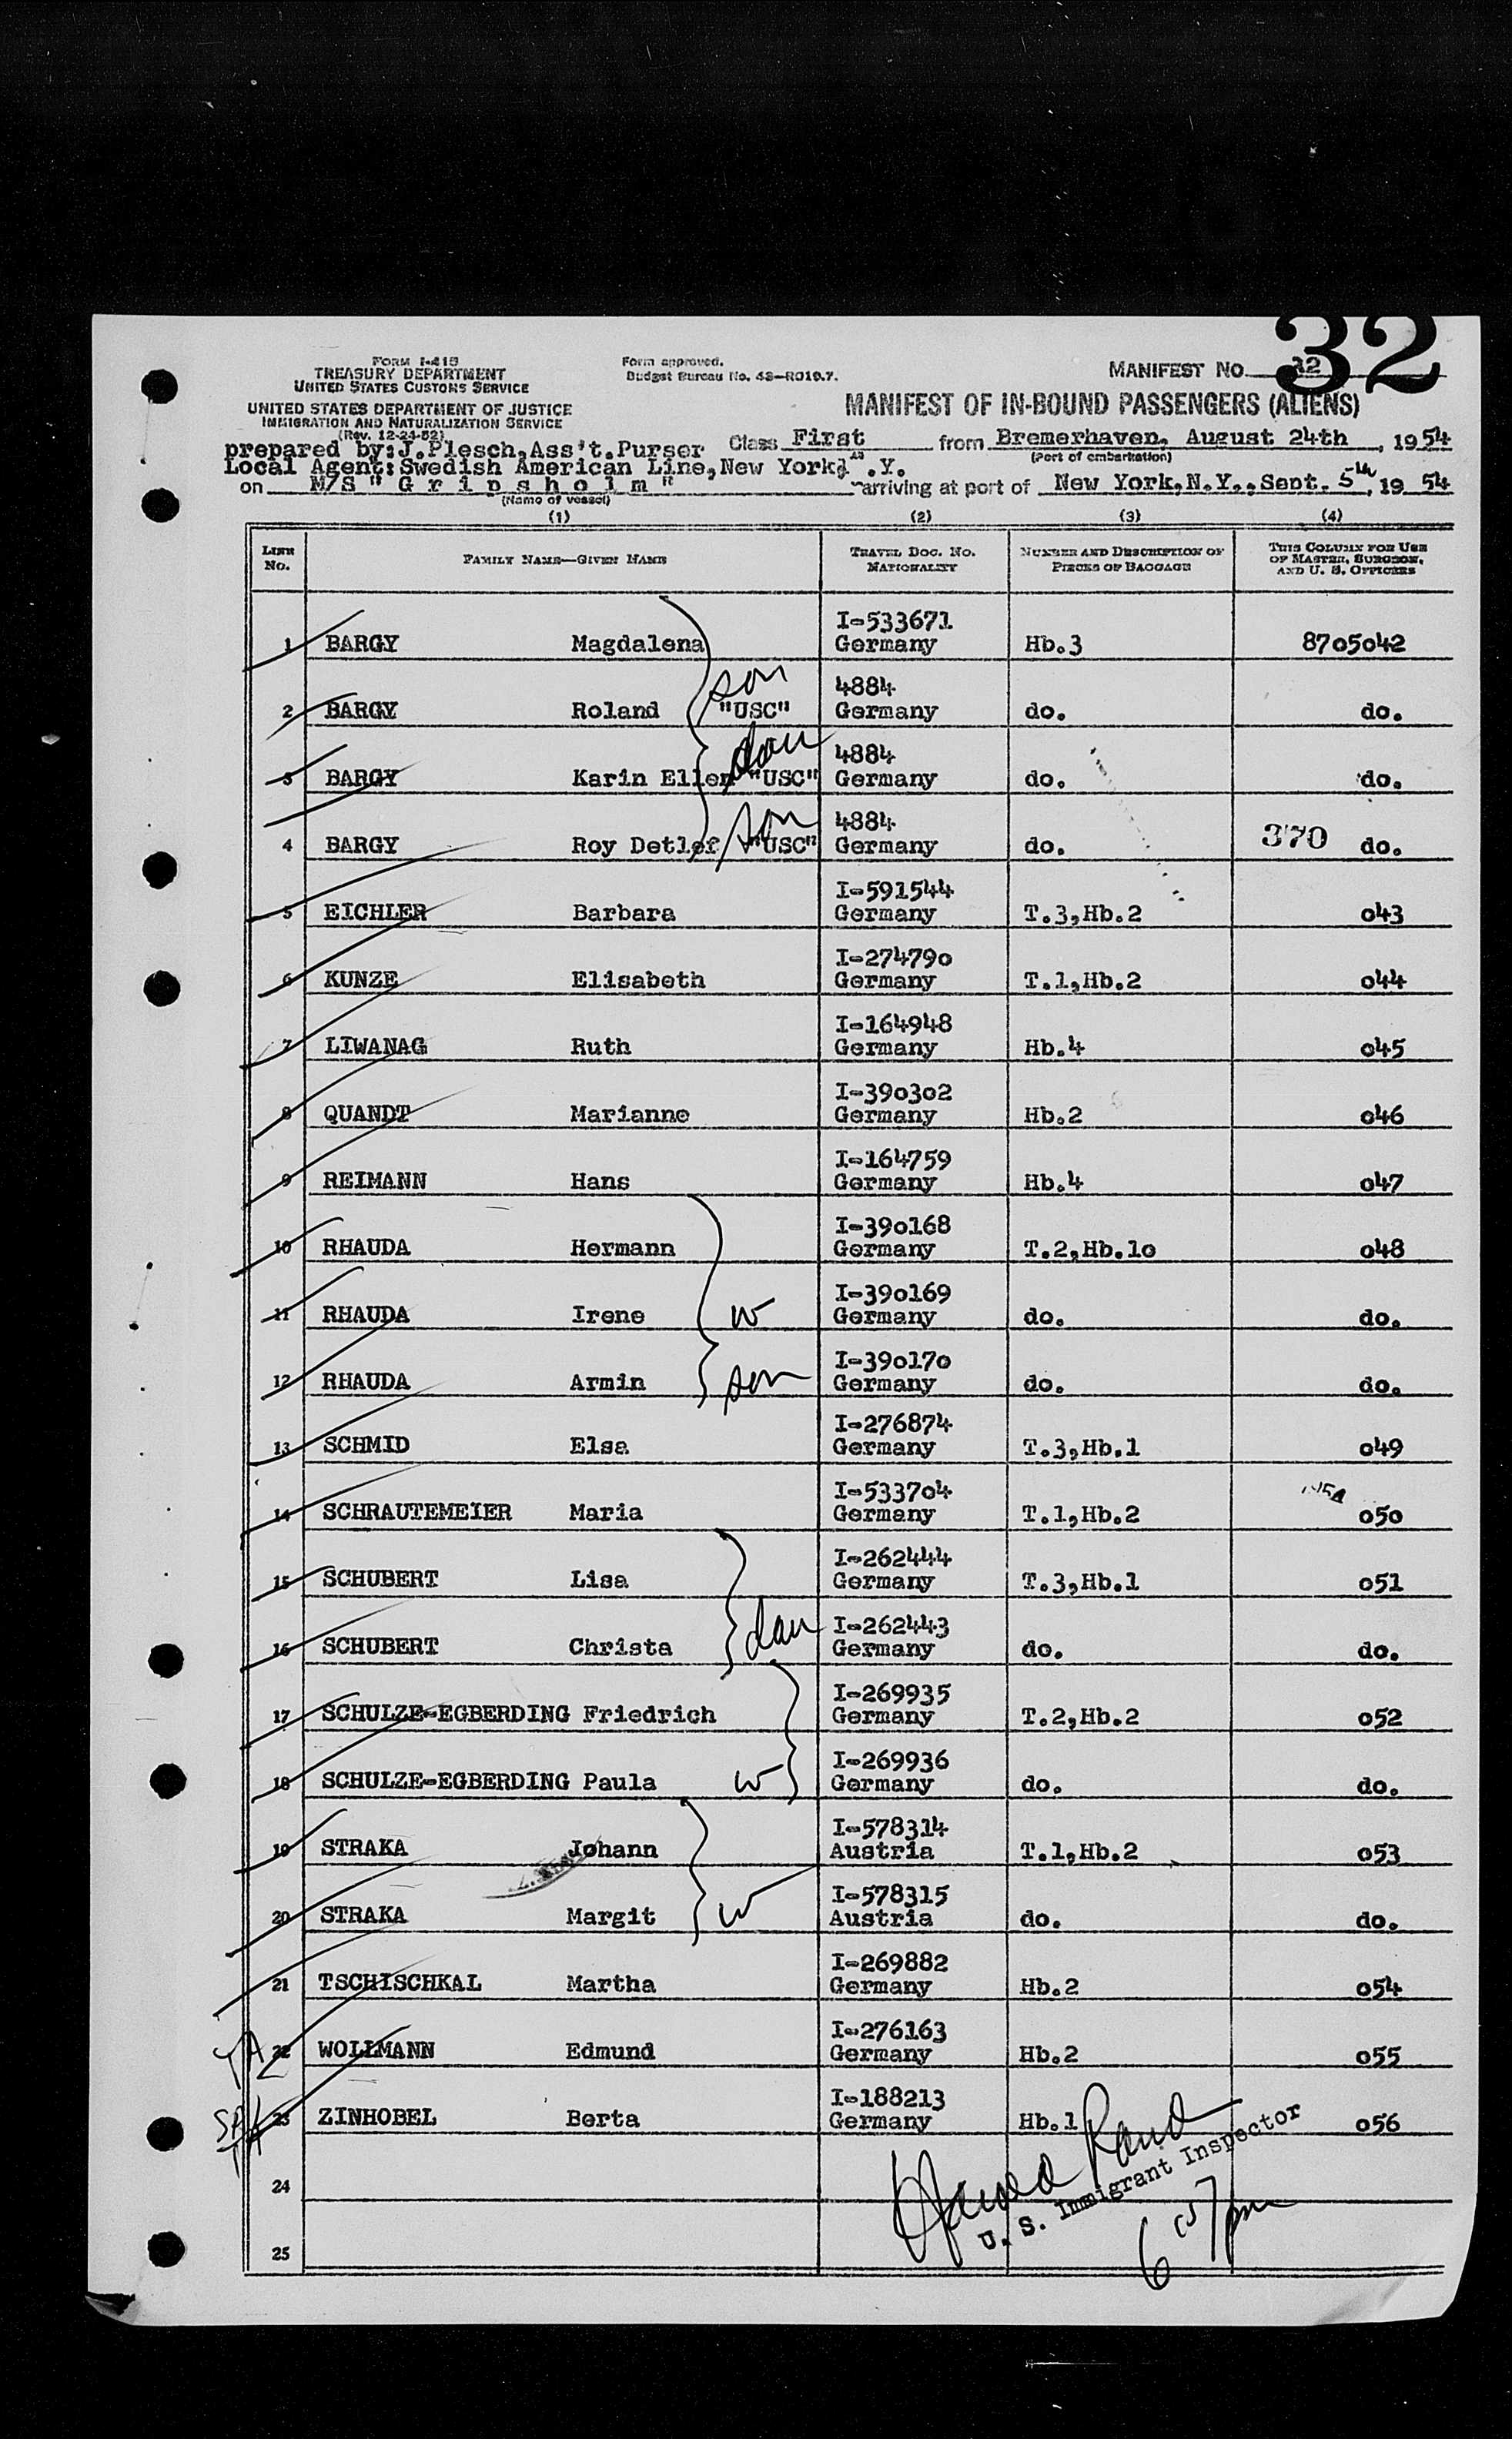 32
FORM I-415
TREASURY DEPARTMENT
UNITED STATES CUSTOMS SERVICE
UNITED STATES DEPARTMENT OF JUSTICE
IMMIGRATION AND NATURALIZATION SERVICE
(Rev. 12-24-52)
Form approved.
Budget Bureau No. 43-R019.7.
MANIFEST NO. 32
MANIFEST OF IN-BOUND PASSENGERS (ALIENS)
prepared by:J.Plesch,Ass't.Purser Class First from Bremerhaven, August 24th, 1954
(Port of embarkation)
Local Agent:Swedish American Line,New York, .Y.
on M/S "G r i p s h o l m" arriving at port of New York,N.Y.,Sept. 5th, 1954
(Name of vessel)
(1) (2) (3) (4)
LINE No. FAMILY NAME—GIVEN NAME TRAVEL DOC. NO. NATIONALITY NUMBER AND DESCRIPTION OF PIECES OF BAGGAGE THIS COLUMN FOR USE OF MASTER, SURGEON, AND U. S. OFFICERS
I-533671
1 BARGY Magdalena Germany Hb.3 8705042
son 4884
2 BARGY Roland "USC" Germany do. do.
dau 4884
3 BARGY Karin Ellen "USC" Germany do. do.
son 4884
4 BARGY Roy Detlef "USC" Germany do. 370 do.
I-591544
5 EICHLER Barbara Germany T.3,Hb.2 043
I-274790
6 KUNZE Elisabeth Germany T.1,Hb.2 044
I-164948
7 LIWANAG Ruth Germany Hb.4 045
I-390302
8 QUANDT Marianne Germany Hb.2 046
I-164759
9 REIMANN Hans Germany Hb.4 047
I-390168
10 RHAUDA Hermann Germany T.2,Hb.10 048
I-390169
11 RHAUDA Irene w Germany do. do.
I-390170
12 RHAUDA Armin son Germany do. do.
I-276874
13 SCHMID Elsa Germany T.3,Hb.1 049
I-533704
14 SCHRAUTEMEIER Maria Germany T.1,Hb.2 050
I-262444
15 SCHUBERT Lisa Germany T.3,Hb.1 051
I-262443
16 SCHUBERT Christa dau Germany do. do.
I-269935
17 SCHULZE-EGBERDING Friedrich Germany T.2,Hb.2 052
I-269936
18 SCHULZE-EGBERDING Paula w Germany do. do.
I-578314
19 STRAKA Johann Austria T.1,Hb.2 053
I-578315
20 STRAKA Margit w Austria do. do.
I-269882
21 TSCHISCHKAL Martha Germany Hb.2 054
I-276163
22 WOLLMANN Edmund Germany Hb.2 055
I-188213
23 ZINHOBEL Berta Germany Hb.1 056
24
U. S. Immigrant Inspector
25